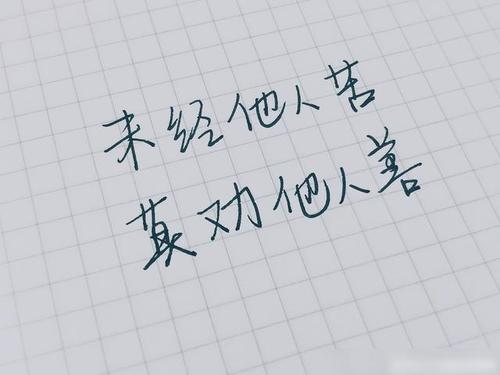 未经他人苦
莫劝他人善